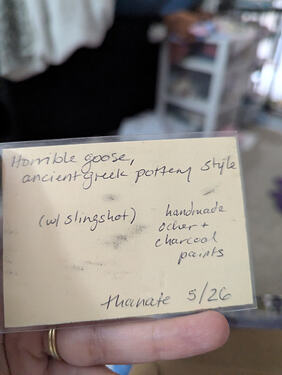 Horrible goose,
ancient greek pottery style
(w/ slingshot)
handmade
ocher +
charcoal
paints
thanate 5/26